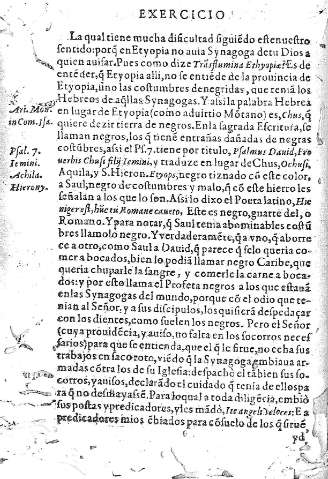 EXERCICIO
La qual tiene mucha dificultad siguiẽdo este nuestro
sentido: porq̃ en Etyopia no auia Synagoga de tu Dios a
quien auisar. Pues como dize Trãsflumina Ethyopiæ? Es de
entẽder, q̃ Etyopia alli, no se entiẽde de la prouincia de
Etyopia, sino las costumbres denegridas, que tenia los
Hebreos de aq̃llas Synagogas. Y assi la palabra Hebrea
en lugar de Etyopia (como aduirtio Mõtano) es, Chus, q̃
quiere dezir tierra de negros. En la sagrada Escritura, se
llaman negros, los q̃ tienẽ entrañas dañadas de negras
costũbres, assi el Ps. 7. tiene por titulo, Psalmus Dauid, pro
uerbis Chusi filij Iemini, y traduze en lugar de Chus, Ochusi,
Aquila, y S. Hieron. Etyops, negro tiznado cõ este color.
a Saul; negro de costumbres y malo, q̃ cõ este hierro les
señalan a los que lo son. Assi lo dixo el Poeta latino, Hic
niger est, hũc tu Romane caueto, Este es negro, guarte del, o
Romano. Y para notar, q̃ Saul tenia abominables costũ
bres llamolo negro. Y verdaderamẽte, q̃ a vno, q̃ aborre
ce a otro, como Saul a Dauid, q̃ parece q̃ se lo queria co-
mer a bocados, bien lo podiã llamar negro Caribe, que
queria chuparle la sangre, y comerle la carne a boca-
dos: y por esto llama el Profeta negros a los que estauã
en las Synagogas del mundo, porque cõ el odio que te-
nian al Señor, y a sus discipulos, los quisierã despedaçar
con los dientes, como suelen los negros. Pero el Señor
(cuya prouidẽcia, y auiso, no falta en los socorros neces
sarios) para que se entienda, que el q̃ le sirue, no echa sus
trabajos en saco roto, viẽdo q̃ la Synagoga embiaua ar-
madas cõtra los de su Iglesia: despachò el tãbien sus so-
corros, y auisos, declarãdo el cuidado q̃ tenia de ellos pa
ra q̃ no desmayassẽ. Para lo qual a toda diligẽcia, embiò
sus postas y predicadores, y les mãdò, Ite angeli veloces: Ea
predicadores mios ẽbiados para cõsuelo de los q̃ siruẽ
yd
Ari. Mon.
in Com. Isa.
Psal. 7.
Iemini.
Achila.
Hierony.